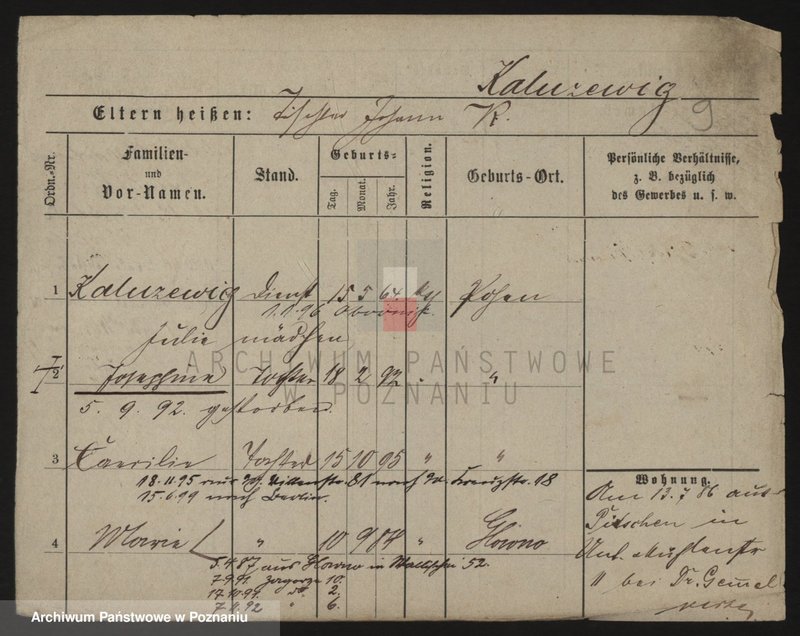 Kaluzewig
9
Eltern heißen: Tischler Johann K.
Ordn.-Nr.
Familien-
und
Vor-Namen.
Stand.
Geburts-
Tag.
Monat.
Jahr.
Religion.
Geburts-Ort.
Persönliche Verhältnisse,
z. B. bezüglich
des Gewerbes u. s. w.
1 Kaluzewig Dienst 15 5 64 Posen
1.1.96 Obornik.
Julie mädchen
2 Josephine Tochter 18 2 92 " "
5. 9. 92. gestorben.
3 Caecilie Tochter 15 10 95 " "
18.11.95 81 nach 18
15.6.99 nach Berlin.
4 Marie " 10 9 84 " Glowno
5.4.87 aus Glowno in Wallischei 52.
7.9.91. Zagorze 10.
17.10.91. do. 2.
7.1.92 " 6.
Wohnung.
Am 13.7.86 aus
Pitschen in
11 bei Dr.
ARCHIWUM PAŃSTWOWE
W POZNANIU
Archiwum Państwowe w Poznaniu